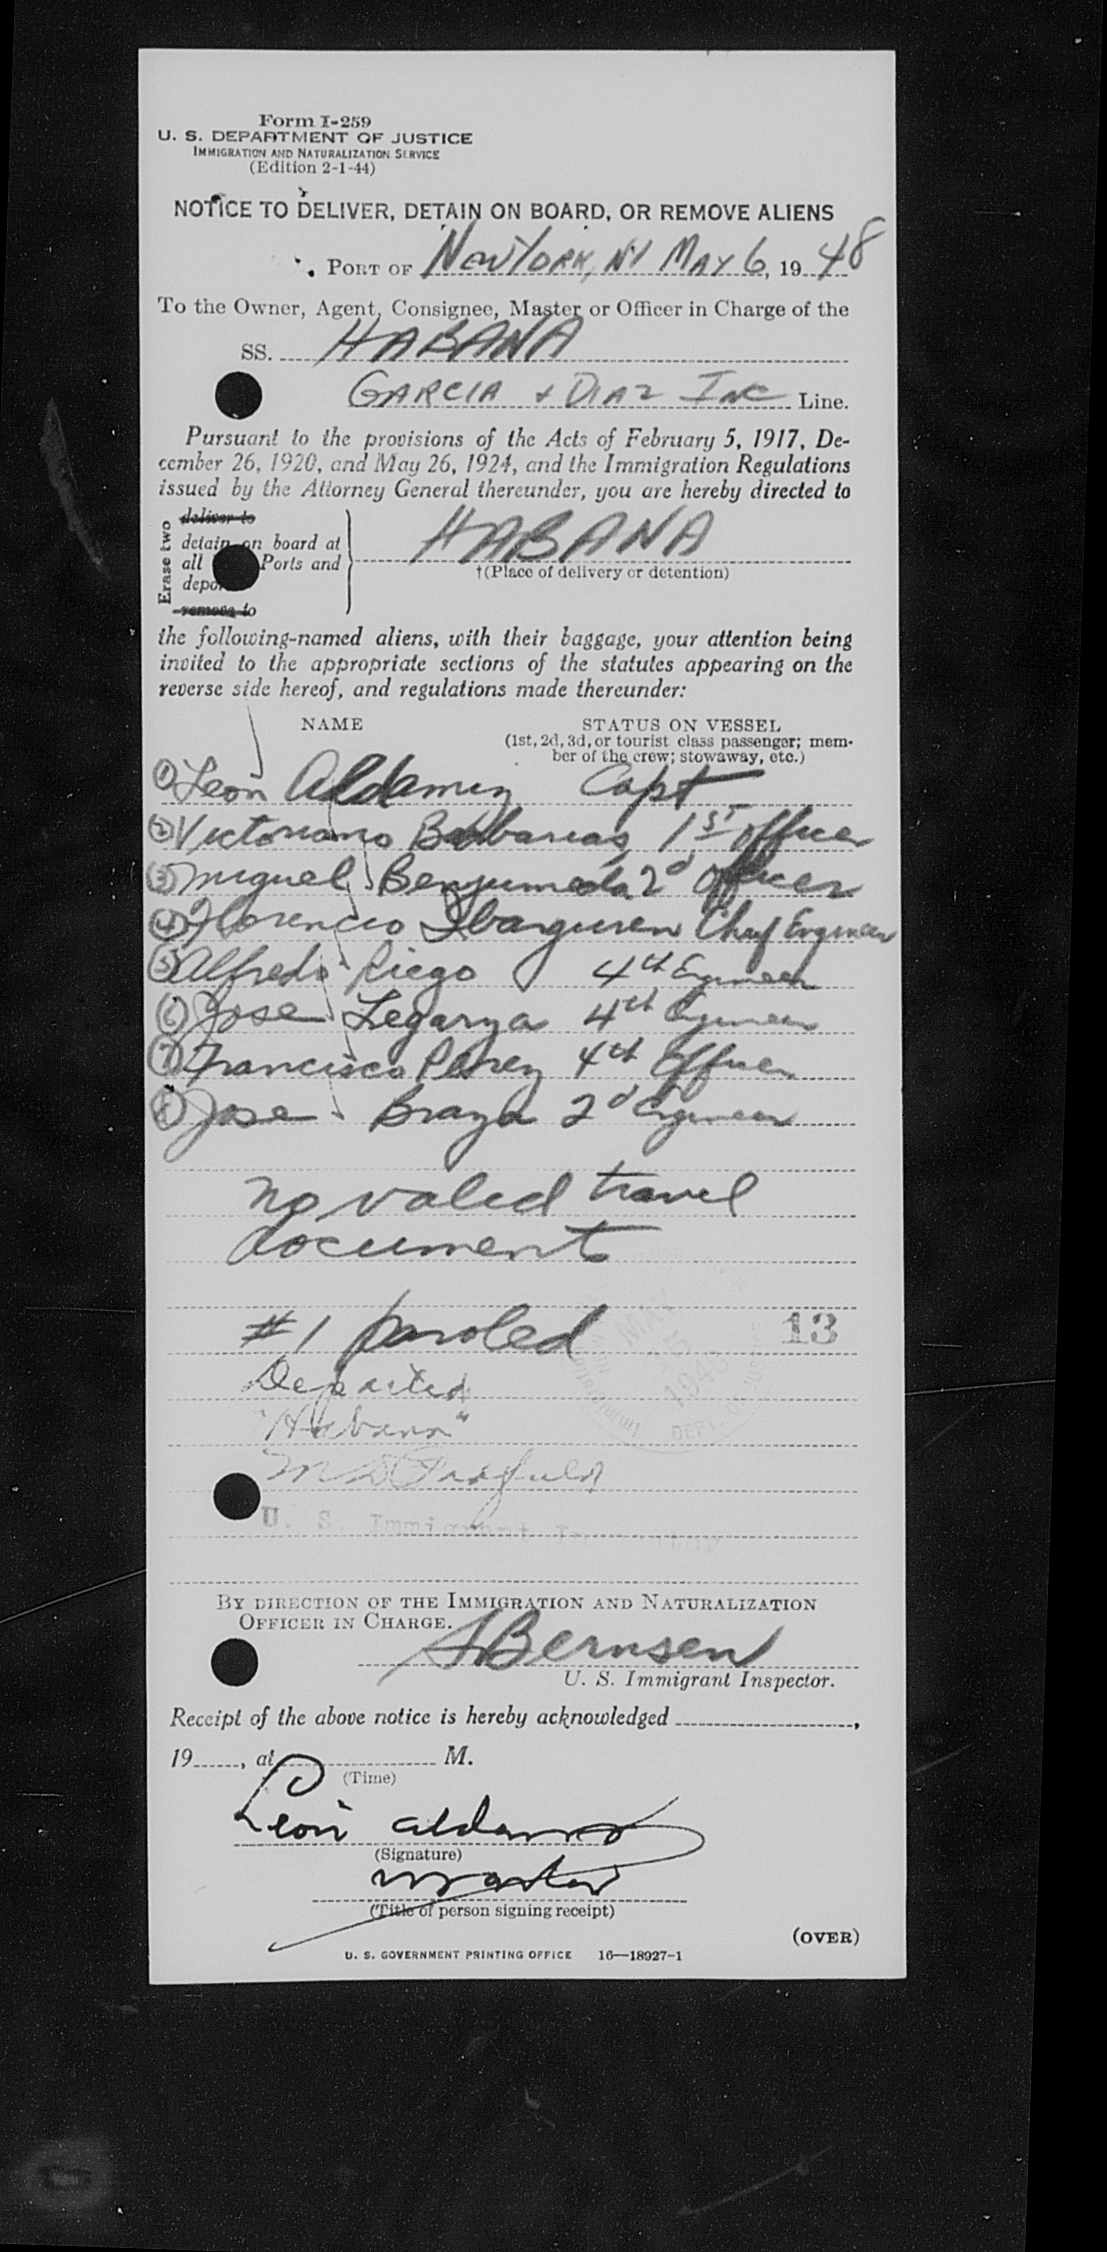 Form I-259
U. S. DEPARTMENT OF JUSTICE
IMMIGRATION AND NATURALIZATION SERVICE
(Edition 2-1-44)
NOTICE TO DELIVER, DETAIN ON BOARD, OR REMOVE ALIENS
PORT OF New York, NY May 6, 1948
To the Owner, Agent, Consignee, Master or Officer in Charge of the
SS. HABANA
GARCIA + DIAZ INC Line.
Pursuant to the provisions of the Acts of February 5, 1917, De-
cember 26, 1920, and May 26, 1924, and the Immigration Regulations
issued by the Attorney General thereunder, you are hereby directed to
Erase two
deliver to
detain on board at
all Ports and
depo
remove to
HABANA
†(Place of delivery or detention)
the following-named aliens, with their baggage, your attention being
invited to the appropriate sections of the statutes appearing on the
reverse side hereof, and regulations made thereunder:
NAME STATUS ON VESSEL
(1st, 2d, 3d, or tourist class passenger; mem-
ber of the crew; stowaway, etc.)
① Leon Aldamiz Capt
② Victoriano Barbarias 1st officer
③ Miguel Benjumeda 2d officer
④ Florencio Ibarguren Chief Engineer
⑤ Alfredo Riego 4th Engineer
⑥ Jose Legarza 4th Engineer
⑦ Francisco Perez 4th officer
⑧ Jose Braza 2d Engineer
no valid travel
document
#1 paroled 13
Departed
"Habana"
U. S. Immigrant Inspector
BY DIRECTION OF THE IMMIGRATION AND NATURALIZATION
OFFICER IN CHARGE.
S Bernsen
U. S. Immigrant Inspector.
Receipt of the above notice is hereby acknowledged ,
19 , at M.
(Time)
Leon Aldamiz
(Signature)
Master
(Title of person signing receipt)
(OVER)
U. S. GOVERNMENT PRINTING OFFICE 16—18927-1